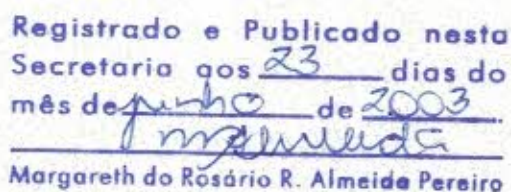 Registrado e Publicado nesta
Secretaria aos 23 dias do
mês de junho de 2003.
Margareth do Rosário R. Almeida Pereira